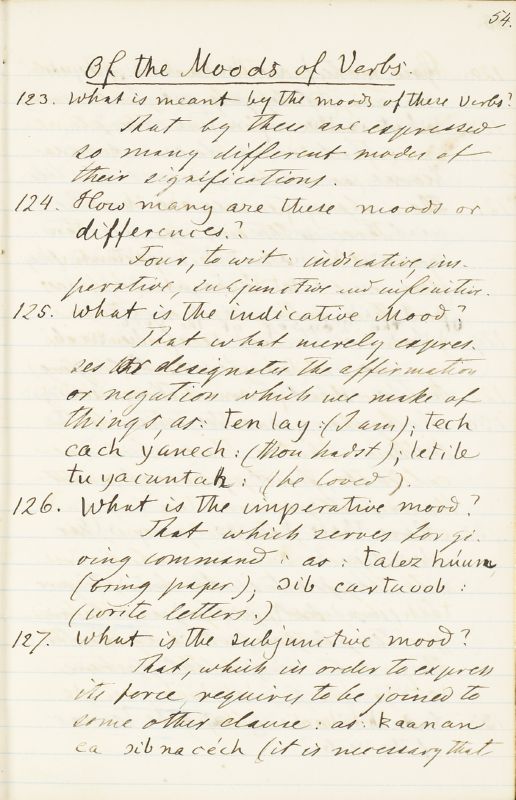 54.
Of the Moods of Verbs.
123. What is meant by the moods of these verbs?
That by these are expressed
so many different modes of
their significations.
124. How many are these moods or
differences.?
Four, to wit: indicative, im-
perative, subjunctive and infinitive.
125. What is the indicative Mood?
That what merely expres-
ses or designates the affirmation
or negation which we make of
things, as: ten lay: (I am); tech
cach yanech: (thou hadst); letile
tu yacuntah: (he loved).
126. What is the imperative mood?
That which serves for gi-
ving command: as: talez húun,
(bring paper), ɔib cartuoob:
(write letters.)
127. What is the subjunctive mood?
That, which in order to express
its force, requires to be joined to
some other clause: as: kaanan
ca ɔibnacéch (it is necessary that